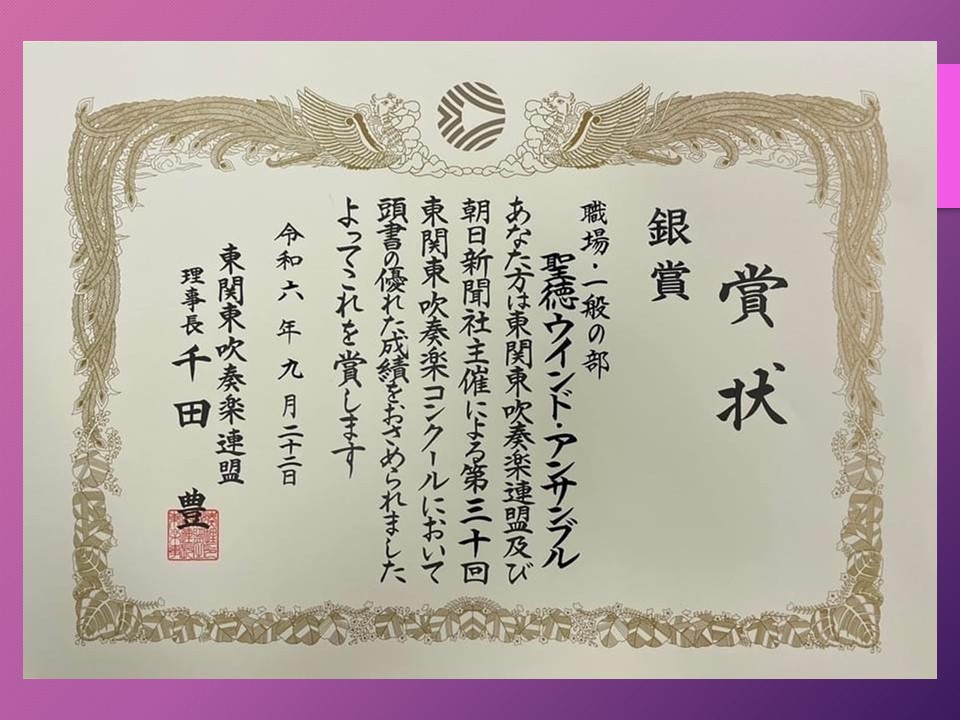 賞状
銀賞
職場・一般の部
聖徳ウインド・アンサンブル
あなた方は東関東吹奏楽連盟及び
朝日新聞社主催による第三十回
東関東吹奏楽コンクールにおいて
頭書の優れた成績をおさめられました
よってこれを賞します
令和六年九月二十二日
東関東吹奏楽連盟
理事長 千田 豊